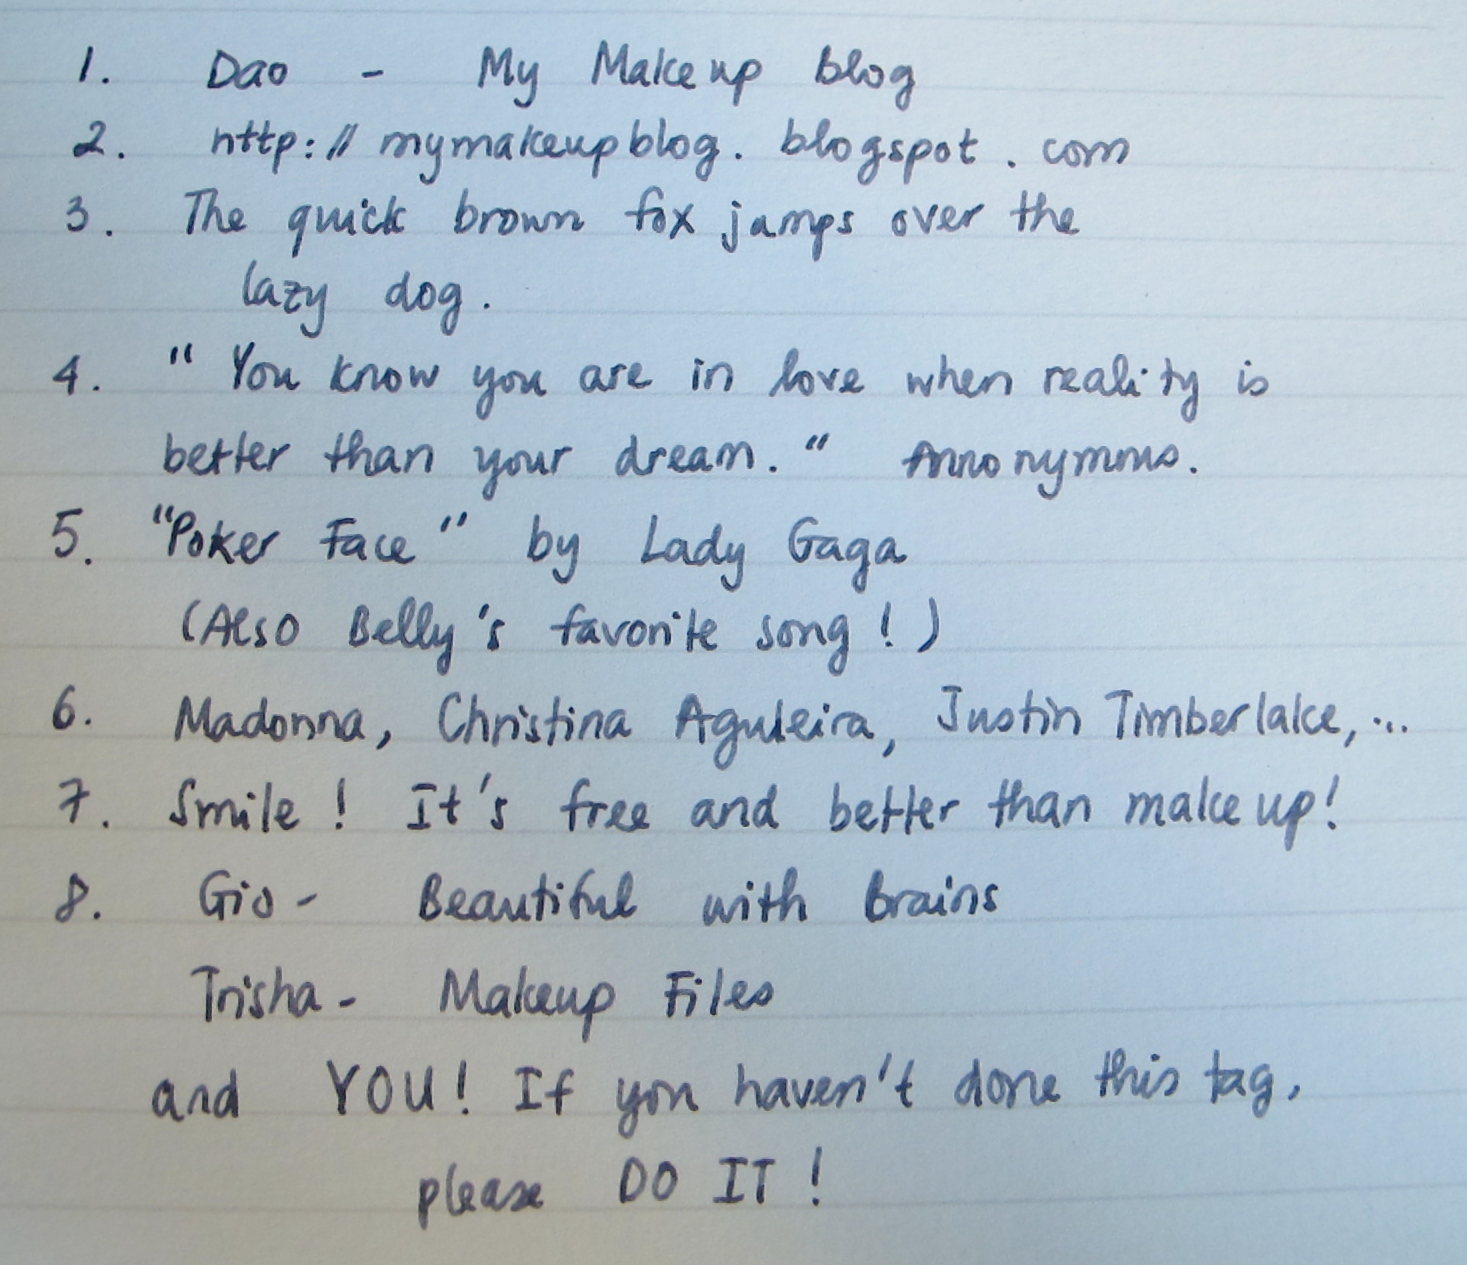 1. Dao - My Makeup blog
2. http://mymakeupblog.blogspot.com
3. The quick brown fox jumps over the
lazy dog.
4. "You know you are in love when reality is
better than your dream." Annonymous.
5. "Poker Face" by Lady Gaga
(Also Belly's favorite song!)
6. Madonna, Christina Aguleira, Justin Timberlake, ...
7. Smile! It's free and better than makeup!
8. Gio - Beautiful with Brains
Trisha - Makeup Files
and YOU! If you haven't done this tag,
please DO IT!